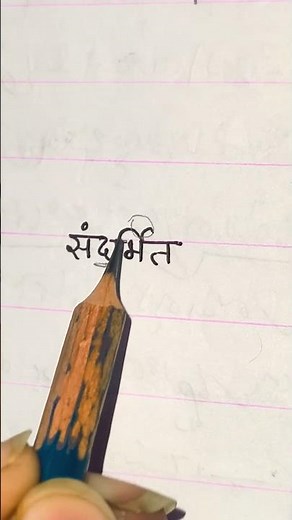 संदर्भित